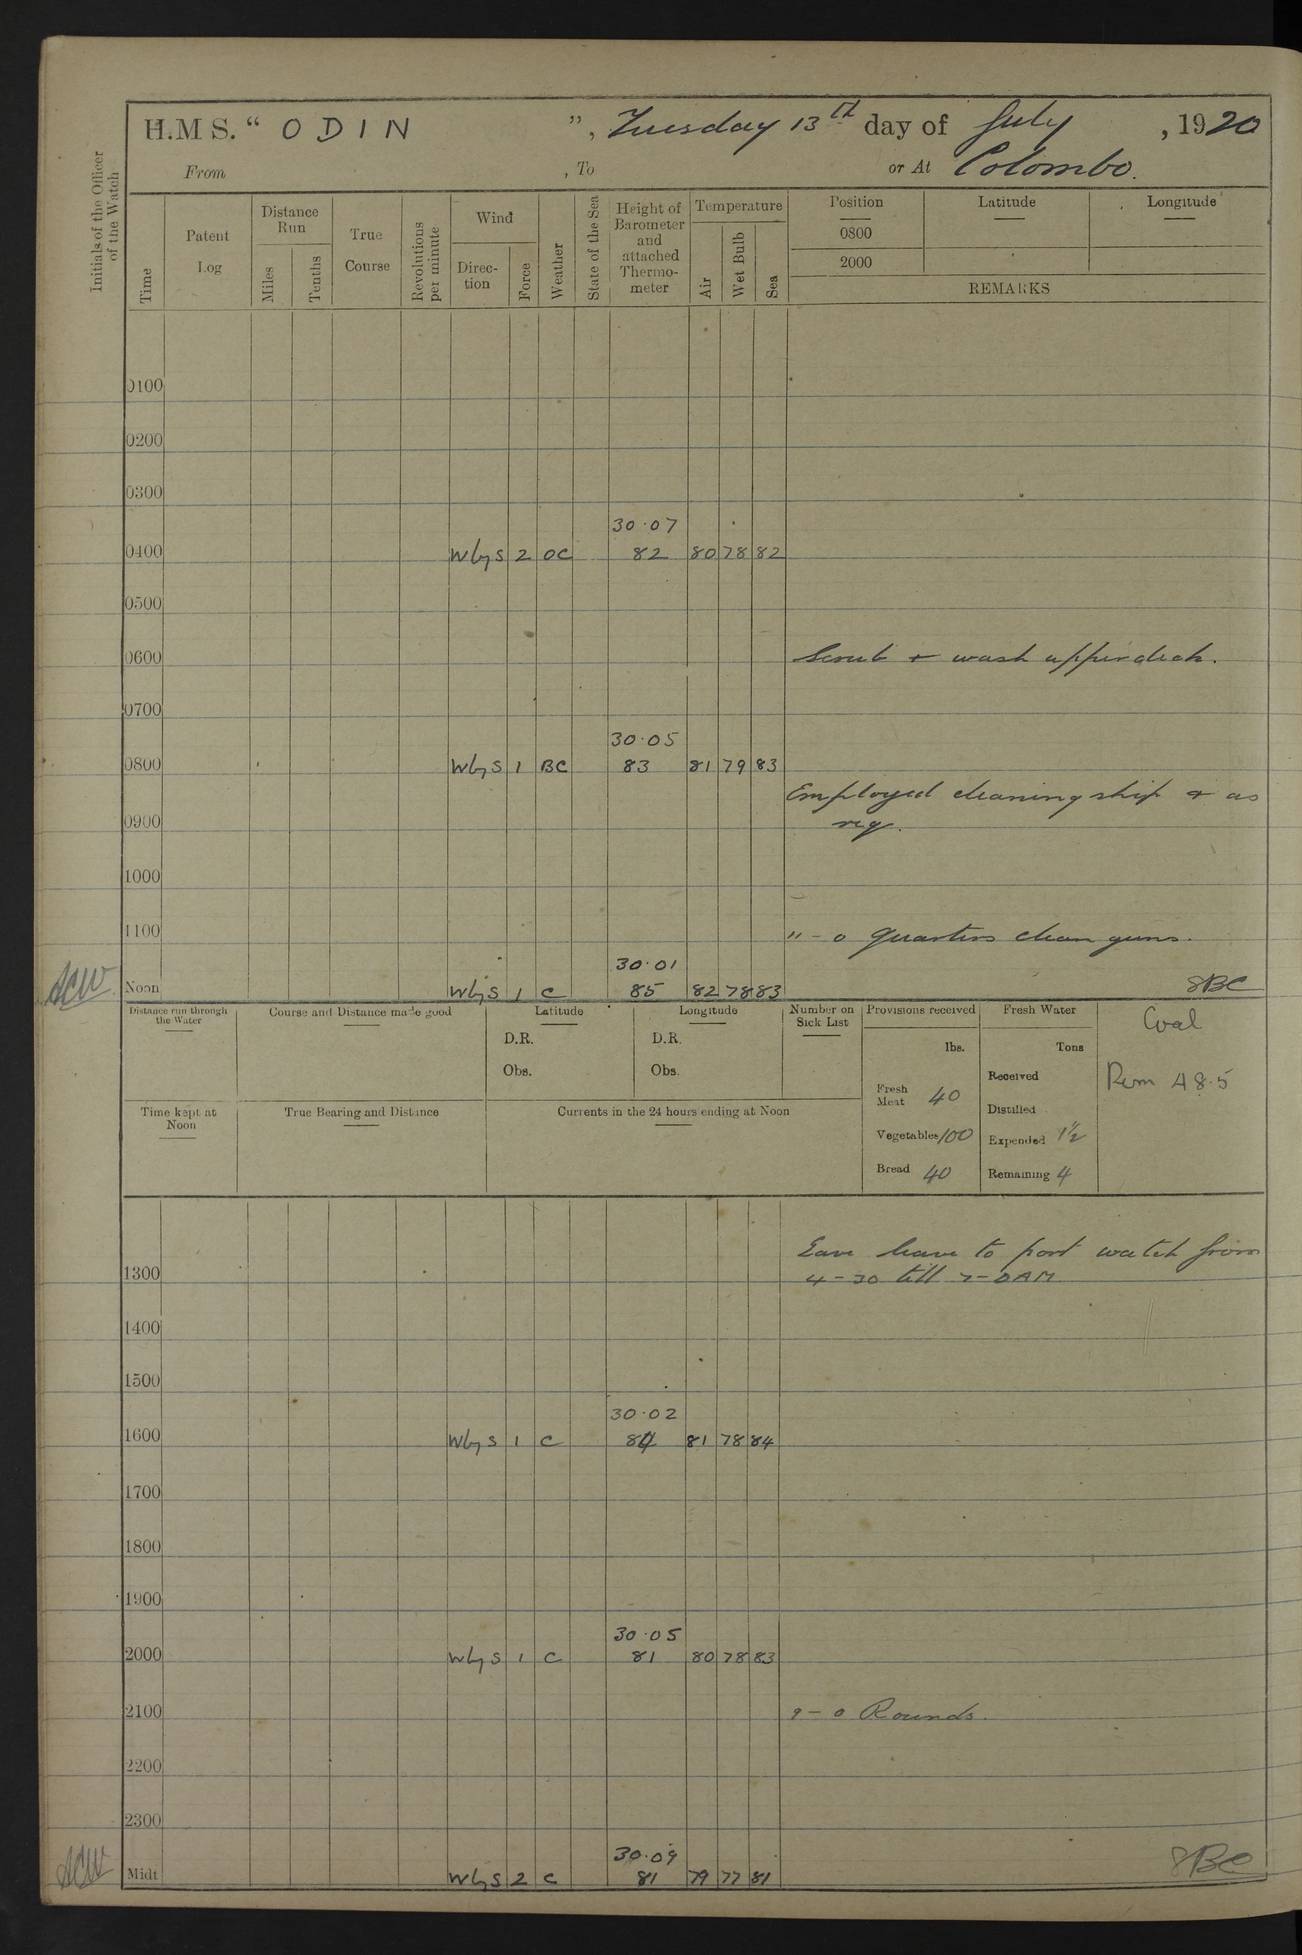 H.M S. " ODIN ", Tuesday 13th day of July, 1920
From , To or At Colombo.
Initials of the Officer of the Watch
Time
Patent Log
Distance Run
Miles
Tenths
True Course
Revolutions per minute
Wind
Direc-tion
Force
Weather
State of the Sea
Height of Barometer and attached Thermo-meter
Temperature
Air
Wet Bulb
Sea
Position Latitude Longitude
0800
2000
REMARKS
0100
0200
0300
30·07
0400 W by S 2 OC 82 80 78 82
0500
0600 Scrub + wash upper deck.
0700
30·05
0800 W by S 1 BC 83 81 79 83
Employed cleaning ship + as
0900 req.
1000
1100 11-0 Quarters clean guns.
30·01
Noon W by S 1 C 85 82 78 83
Distance run through the Water
Course and Distance made good
Latitude
D.R.
Obs.
Longitude
D.R.
Obs.
Number on Sick List
Provisions received
lbs.
Fresh Meat 40
Vegetables 100
Bread 40
Fresh Water
Tons
Received
Distilled
Expended 1½
Remaining 4
Coal
Rem 48·5
Time kept at Noon
True Bearing and Distance
Currents in the 24 hours ending at Noon
leave to port watch from
1300 4-30 till 7-0 AM
1400
1500
30·02
1600 W by S 1 C 84 81 78 84
1700
1800
1900
30·05
2000 W by S 1 C 81 80 78 83
2100 9-0 Rounds.
2200
2300
30·09
Midt W by S 2 C 81 79 77 81